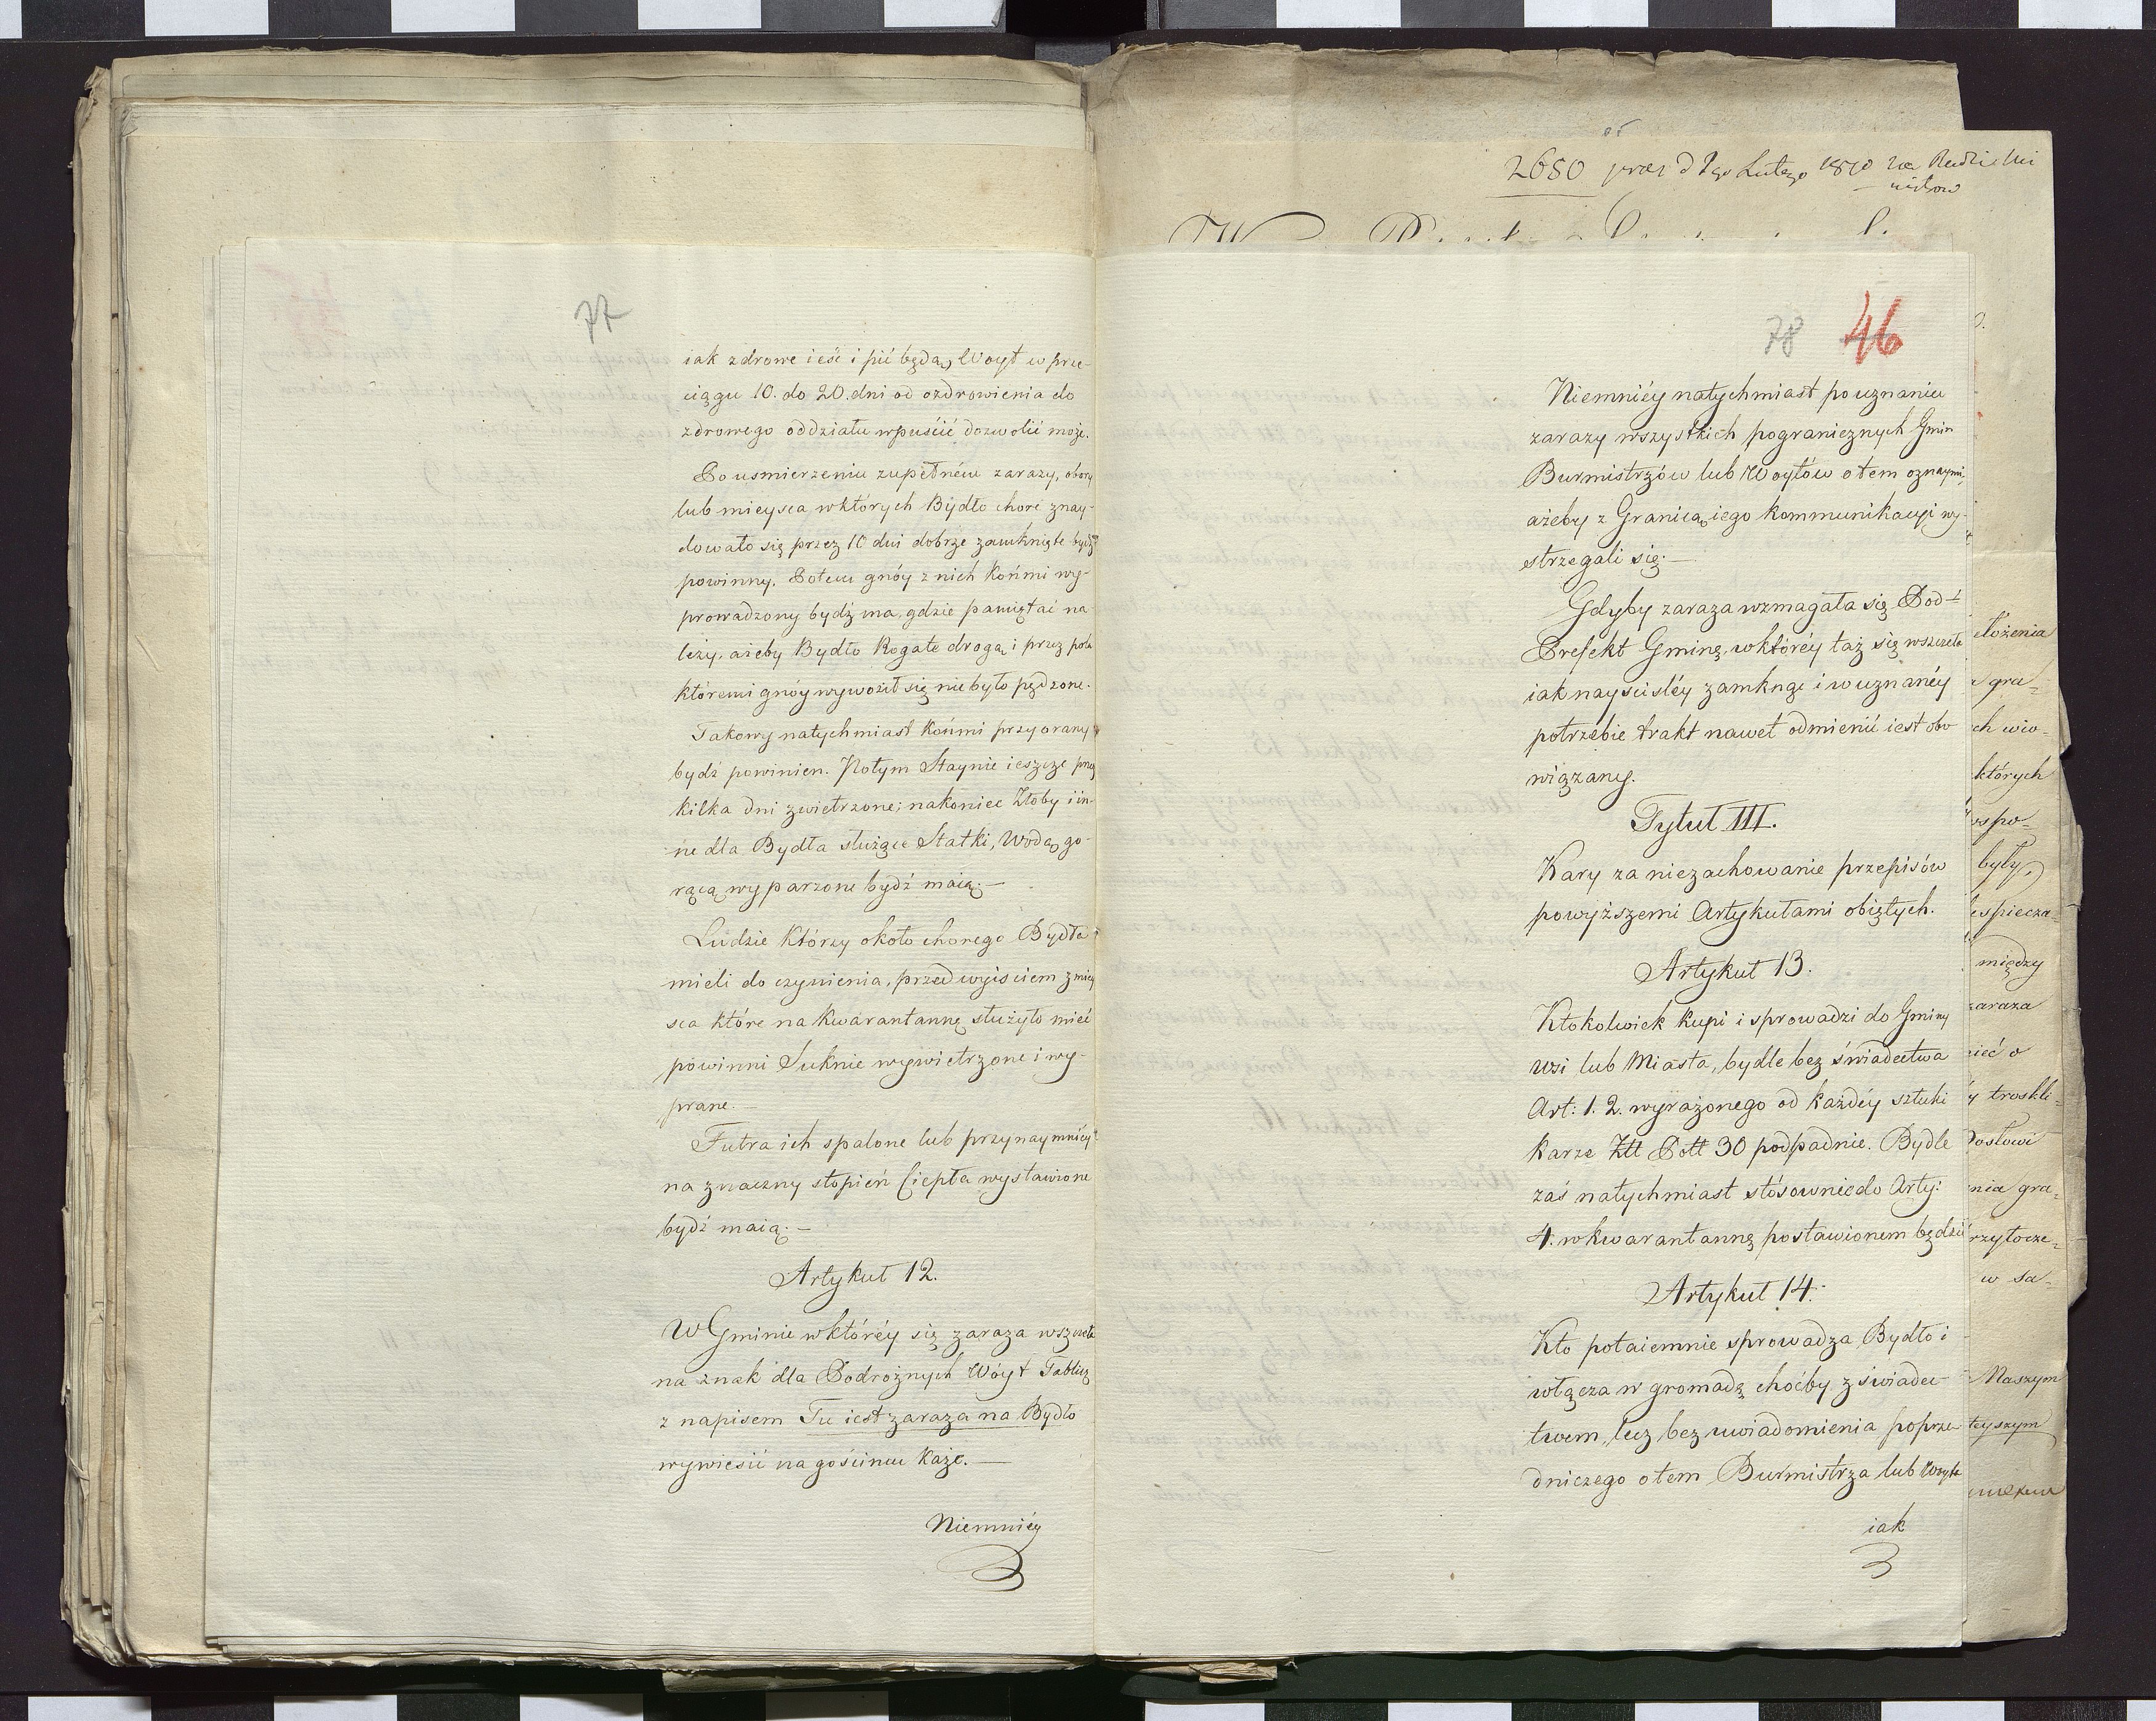 77
iak zdrowe ieść i pić będą, Woyt w prze-
ciągu 10. do 20. dni od ozdrowienia do
zdrowego oddziału wpuścić dozwolić może.
Po usmierzeniu zupełném zarazy, obory
lub mieysca wktórych Bydło chore znay-
dowało się przez 10 dni dobrze zamknięte bydź
powinny. Potem gnóy z nich Końmi wy-
prowadzony bydź ma, gdzie pamiętać na-
leży, ażeby Bydło Rogate drogą i przez pola
któremi gnóy wywoził się nie było pędzone.
Takowy natychmiast Końmi przyorany
bydź powinien. Potym Staynie ieszcze przez
kilka dni zwietrzone; nakoniec Żłoby i in-
ne dla Bydła służące Statki, Wodą go-
rącą wyparzone bydź maią.—
Ludzie Którzy około chorego Bydła
mieli do czynienia, przed wyiściem z miey
sca które na Kwarantannę służyło mieć
powinni Suknie wywietrzone i wy-
prane.—
Futra ich spalone lub przynaymniéy
na znaczny stopień Ciepła wystawione
bydź maią.—
Artykuł 12.
W Gminie wktóréy się zaraza wszczeła
na znak dla Podrożnych Wóyt Tablicę
z napisem Tu iest zaraza na Bydło
wywiesić na gościńcu Każe.—
Niemniéy
2680 prez d 1go Lutego 1810
78 46
Niemniéy natychmiast po uznaniu
zarazy wszystkich pogranicznych Gmin
Burmistrzów lub Woytów otem oznaymi,
ażeby z Granicą iego kommunikacyi wy-
strzegali się.—
Gdyby zaraza wzmagała się Pod-
Prefekt Gminę, wktóréy taż się wszczeła
iak nayściśléy zamknąć i w uznanéy
potrzebie trakt nawet odmienić iest obo
wiązany.
Tytuł III.
Kary za niezachowanie przepisów
powyższemi Artykułami obiętych.
Artykuł 13.
Ktokolwiek kupi i sprowadzi do Gminy
wsi lub Miasta, bydle bez świadectwa
Art: 1. 2. wyrażonego od każdéy sztuki
karze Ztt Pott 30 podpadnie. Bydle
zaś natychmiast stósownie do Arty:
4. w kwarantannę postawionem będzie
Artykuł 14.
Kto potaiemnie sprowadza Bydło i
włącza w gromadę choćby z świadec-
twem, lecz bez uwiadomienia poprze-
dniczego otem Burmistrza lub Woyta
iak
ełożenia
gra=
ch wio-
których
ospo-
były,
espiecza-
między
zaraza
ieć o
troskli-
Posłowi
nia gra=
rzytocze=
w sa-
Naszym
teyszym